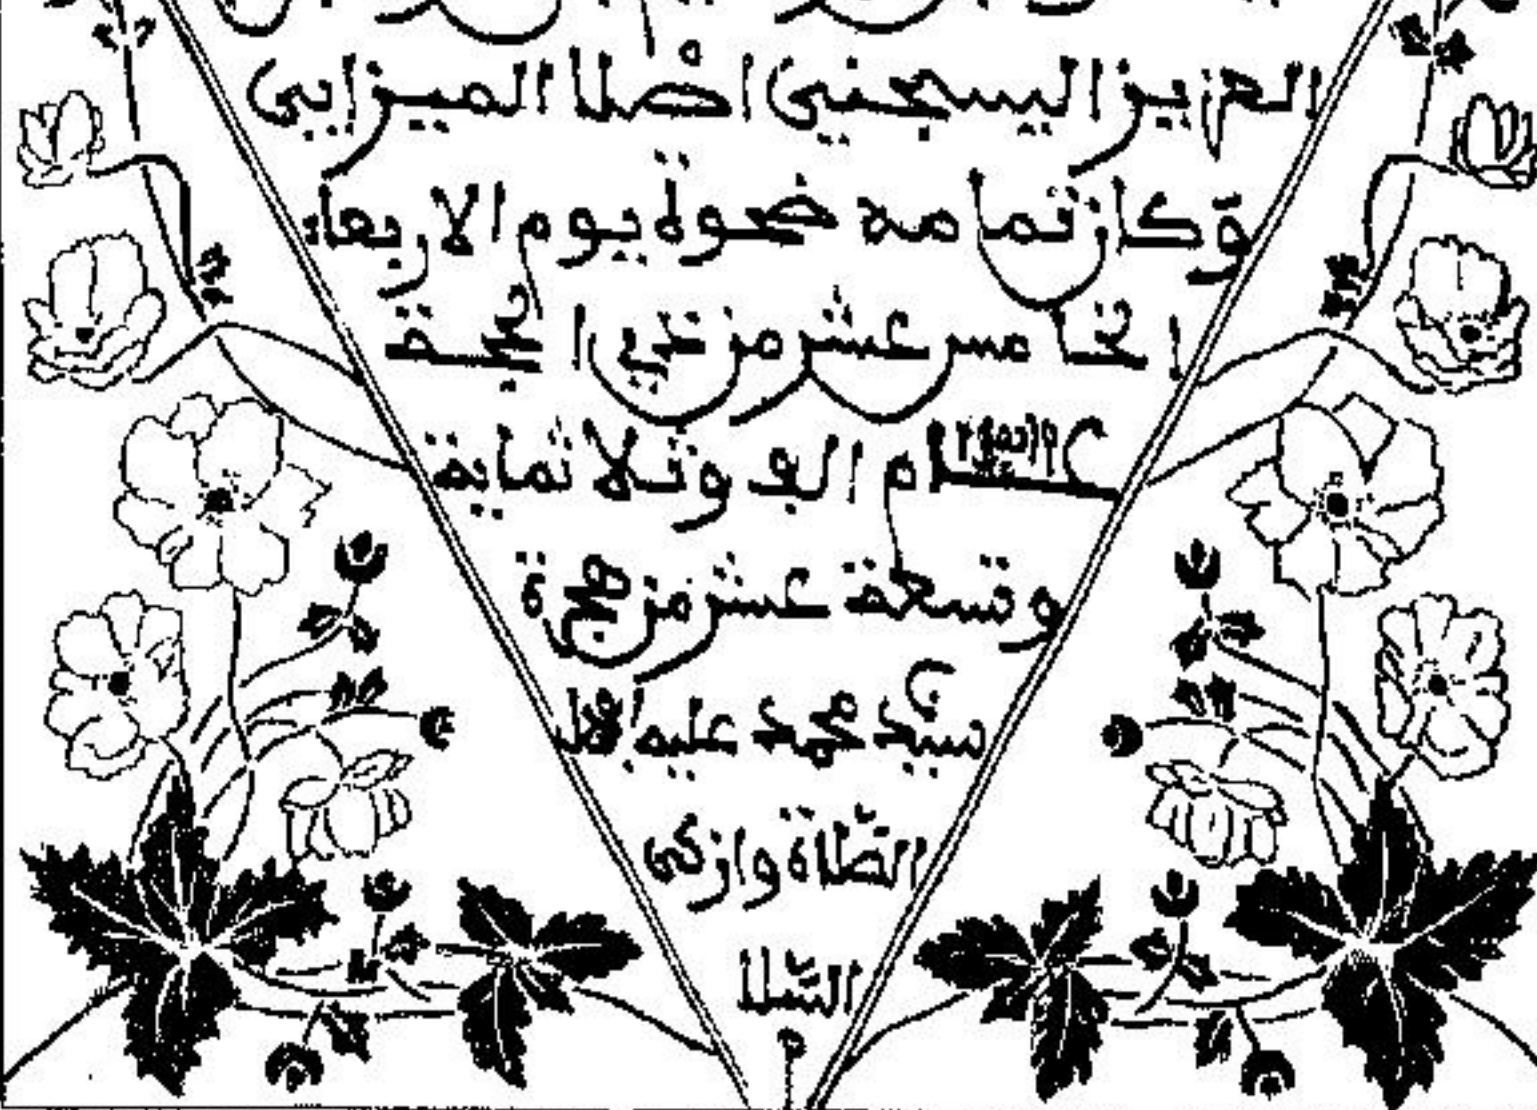 العزيز اليسجني اصلا الميزابي
وكان تمامه ضحوة يوم الاربعاء
الخامس عشر من ذي الحجة
عام الف وثلاثماية
وتسعة عشر من هجرة
سيد محمد عليه
الصّلاة وازكى
السّلام